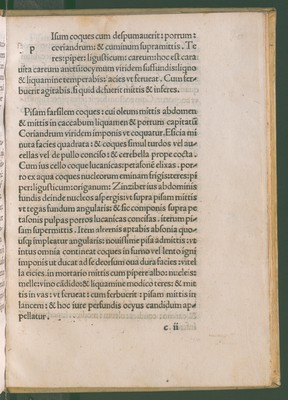 Isum coques cum despumauerit: porrum:
p coriandrum: & cuminum supramittis. Te
res: piper: ligusticum: careum: hoc est cara
uita careum anetū ocymum uiridem suffundis: liqno
& liquamine temperabis: acies ut ferueat. Cum fer-
buerit agitabis. si quid defuerit mittis & inferes.
Pisam farsilem coques: cui oleum mittis abdomen
& mittis in caccabum liquamen & porrum capitatū
Coriandrum uiridem imponis ut coquatur. Esicia mi
nuta facies quadrata: & coques simul turdos uel au
cellas uel de pullo conciso: & cerebella prope cocta.
Cum ius cello coque lucanicas: petasonē elixas. por-
ro ex aqua coques nucleorum eminam frigis: teres: pi
per: ligusticum: origanum: Zinziber ius abdominis
fundis deinde nucleos aspergis: ut supra pisam mittis
ut tegas fundum angularis: & sic componis supra pe
tasonis pulpas porros lucanicas concisas. iterum pi
sam supermittis. Item alternis aptabis absonia quo-
usq; impleatur angularis: nouissime pisa admittis: ut
intus omnia contineat coques in furno uel lento igni
imponis ut ducat ad se deorsum oua dura facies: uitel
la eicies. in mortario mittis cum pipere albo: nucleis:
melle: uino cādido: & liquamine modico teres: & mit
tis in uas: ut ferueat: cum ferbuerit: pisam mittis in
lancem: & hoc iure perfundis ocyus candidum ap-
pellatur.
c ii